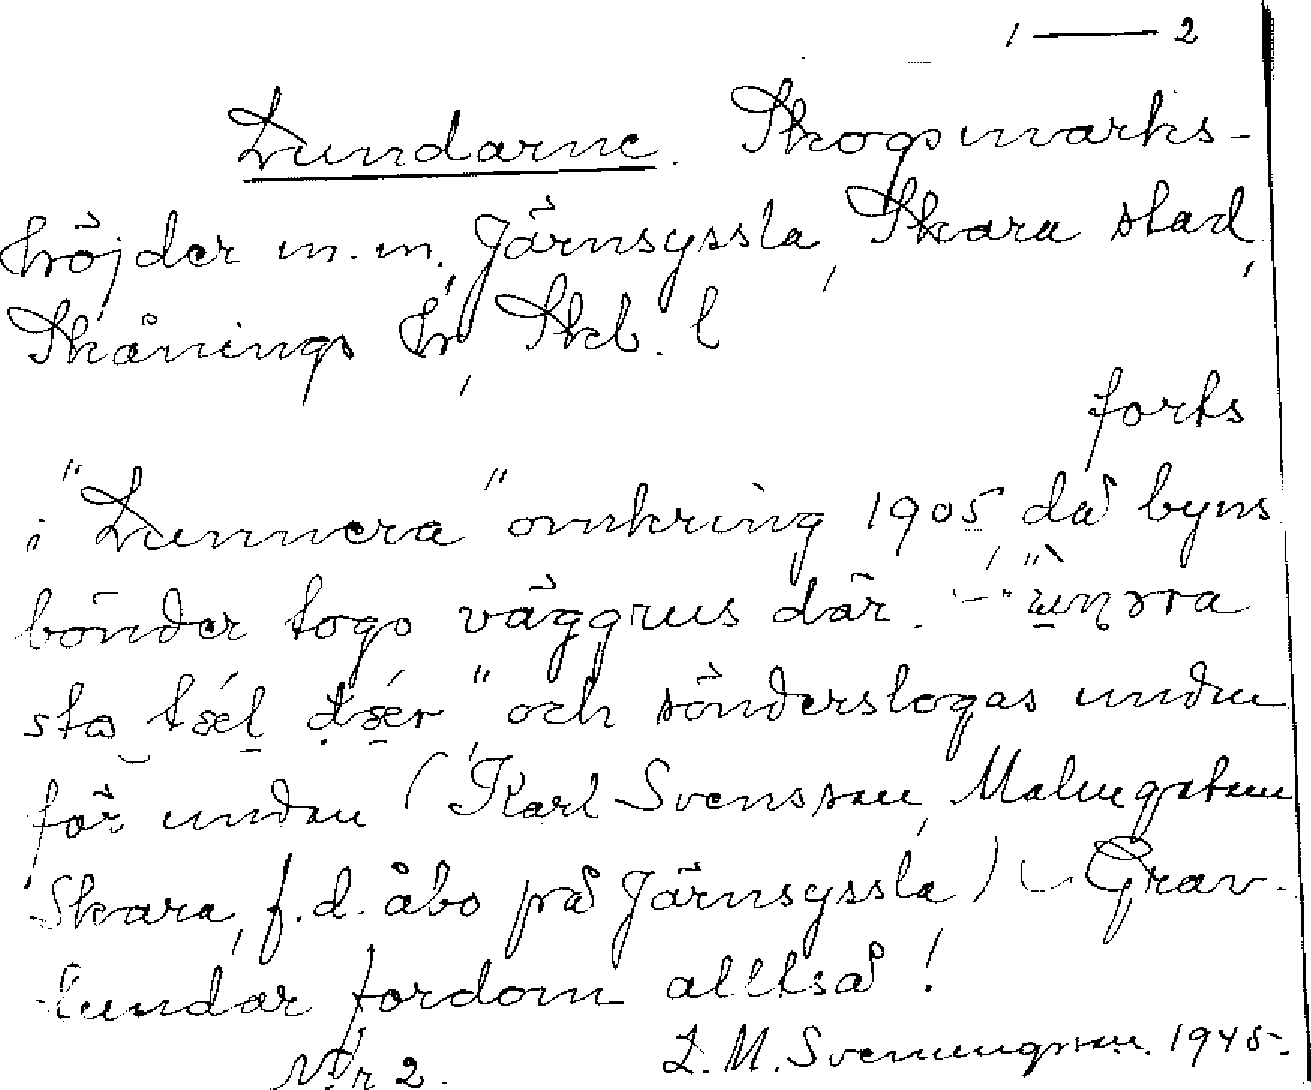 1 — 2
Lundarne. Skogsmarks-
höjder m.m., Järnsyssla, Skara stad,
Skånings hd, Skb. l
forts
i "Lunnera" omkring 1905, då byns
bönder togo väggrus där. —
och sönderslogas undan
för undan (Karl Svensson, Malmgatan
Skara, f.d. åbo på Järnsyssla) — Grav-
lundar fordom alltså!
Nr 2. L. M. Svenungsson. 1945.